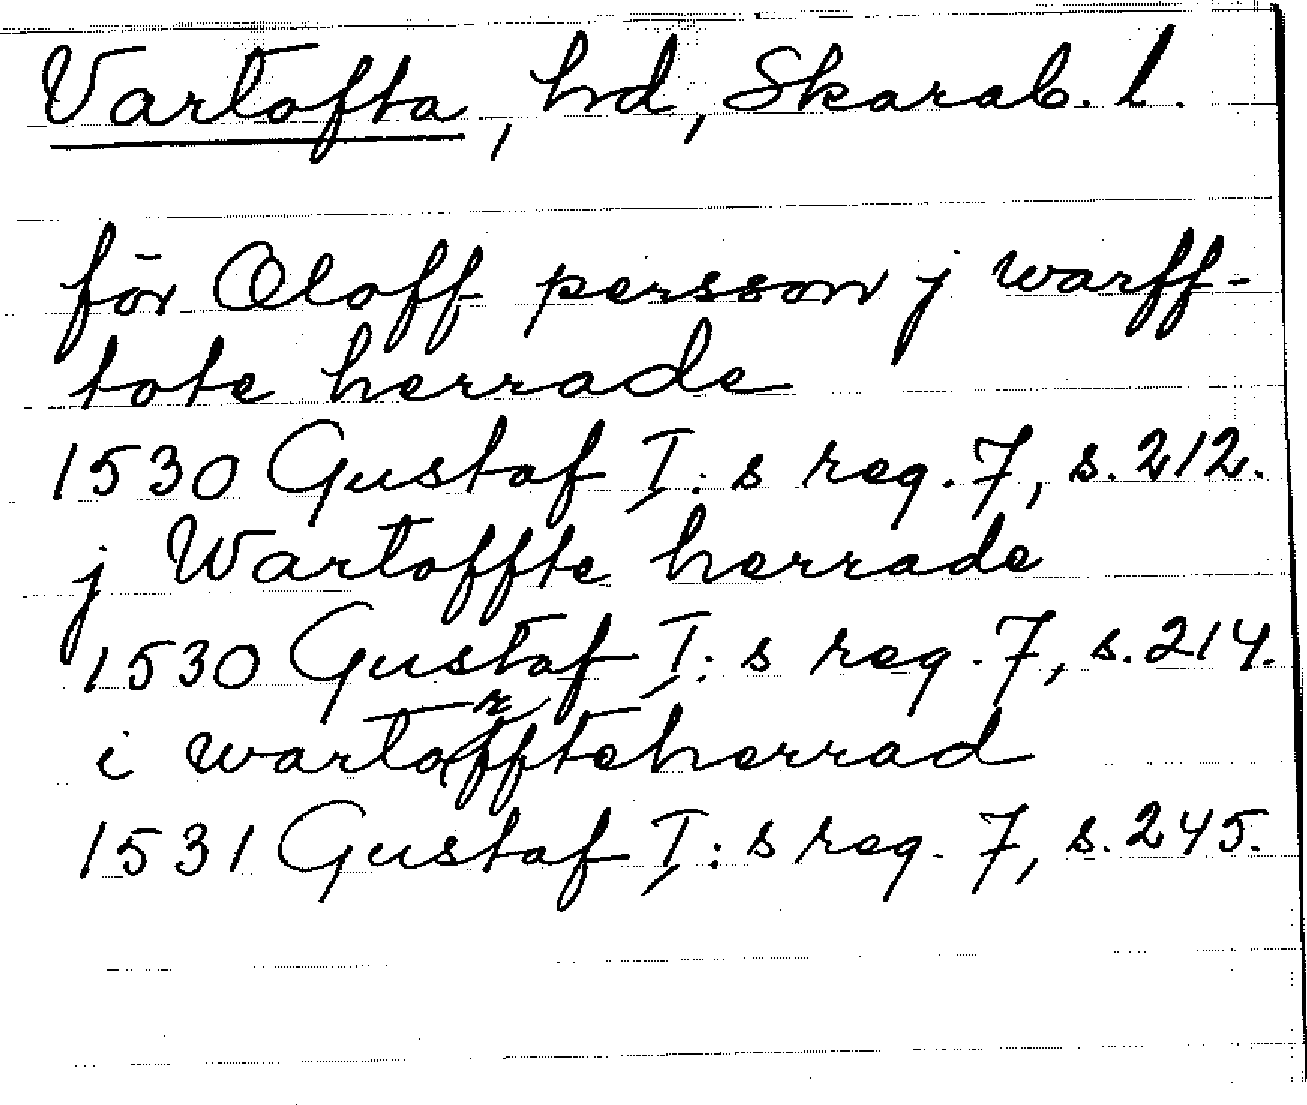 Vartofta, hd, Skarab. l.
för Oloff persson j warff-
tote herrade
1530 Gustaf I:s reg. 7, s. 212.
j Wartoffte herrade
1530 Gustaf I:s reg. 7, s. 214.
i wartoffteherrad
1531 Gustaf I:s reg. 7, s. 245.